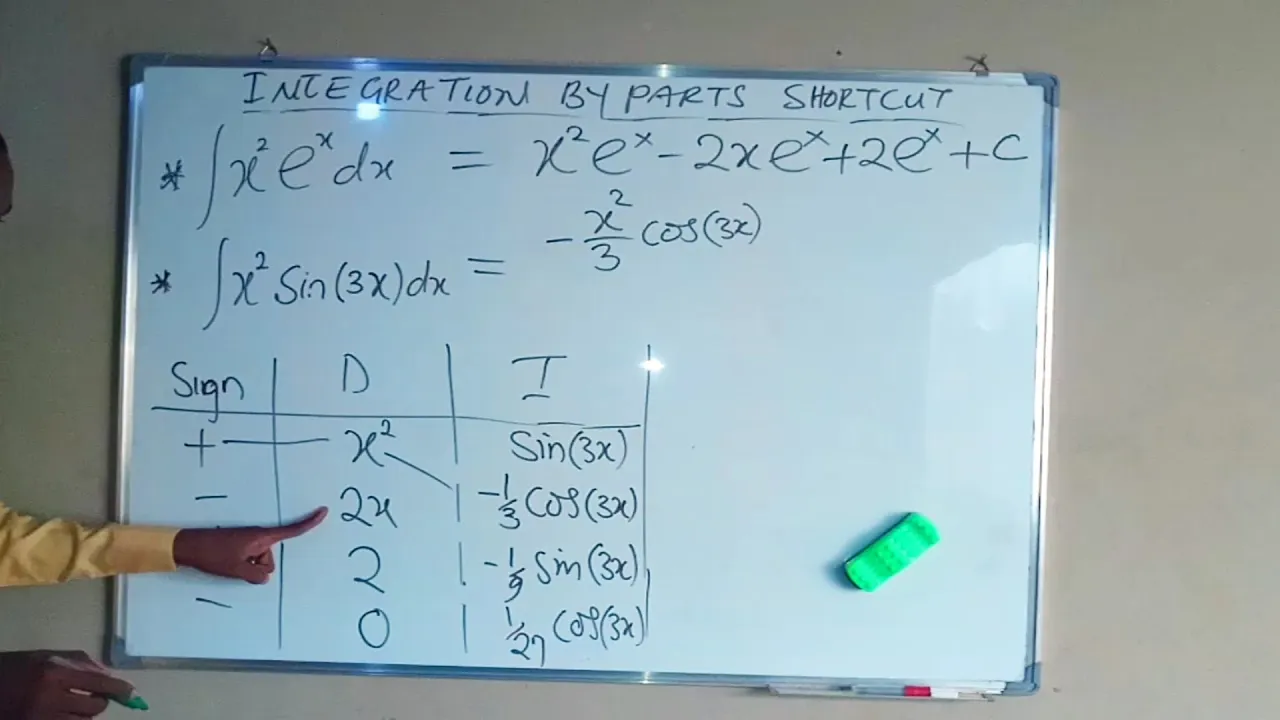 INTEGRATION BY PARTS SHORTCUT
* ∫x²eˣdx = x²eˣ - 2xeˣ + 2eˣ + C
* ∫x² Sin(3x)dx = -x²/3 Cos(3x)
Sign D I
+ x² Sin(3x)
- 2x -1/3 Cos(3x)
2 -1/9 Sin(3x)
- 0 1/27 Cos(3x)